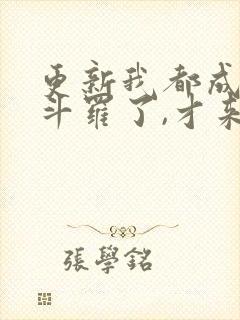 更新我都成
斗羅了,才來
張學銘